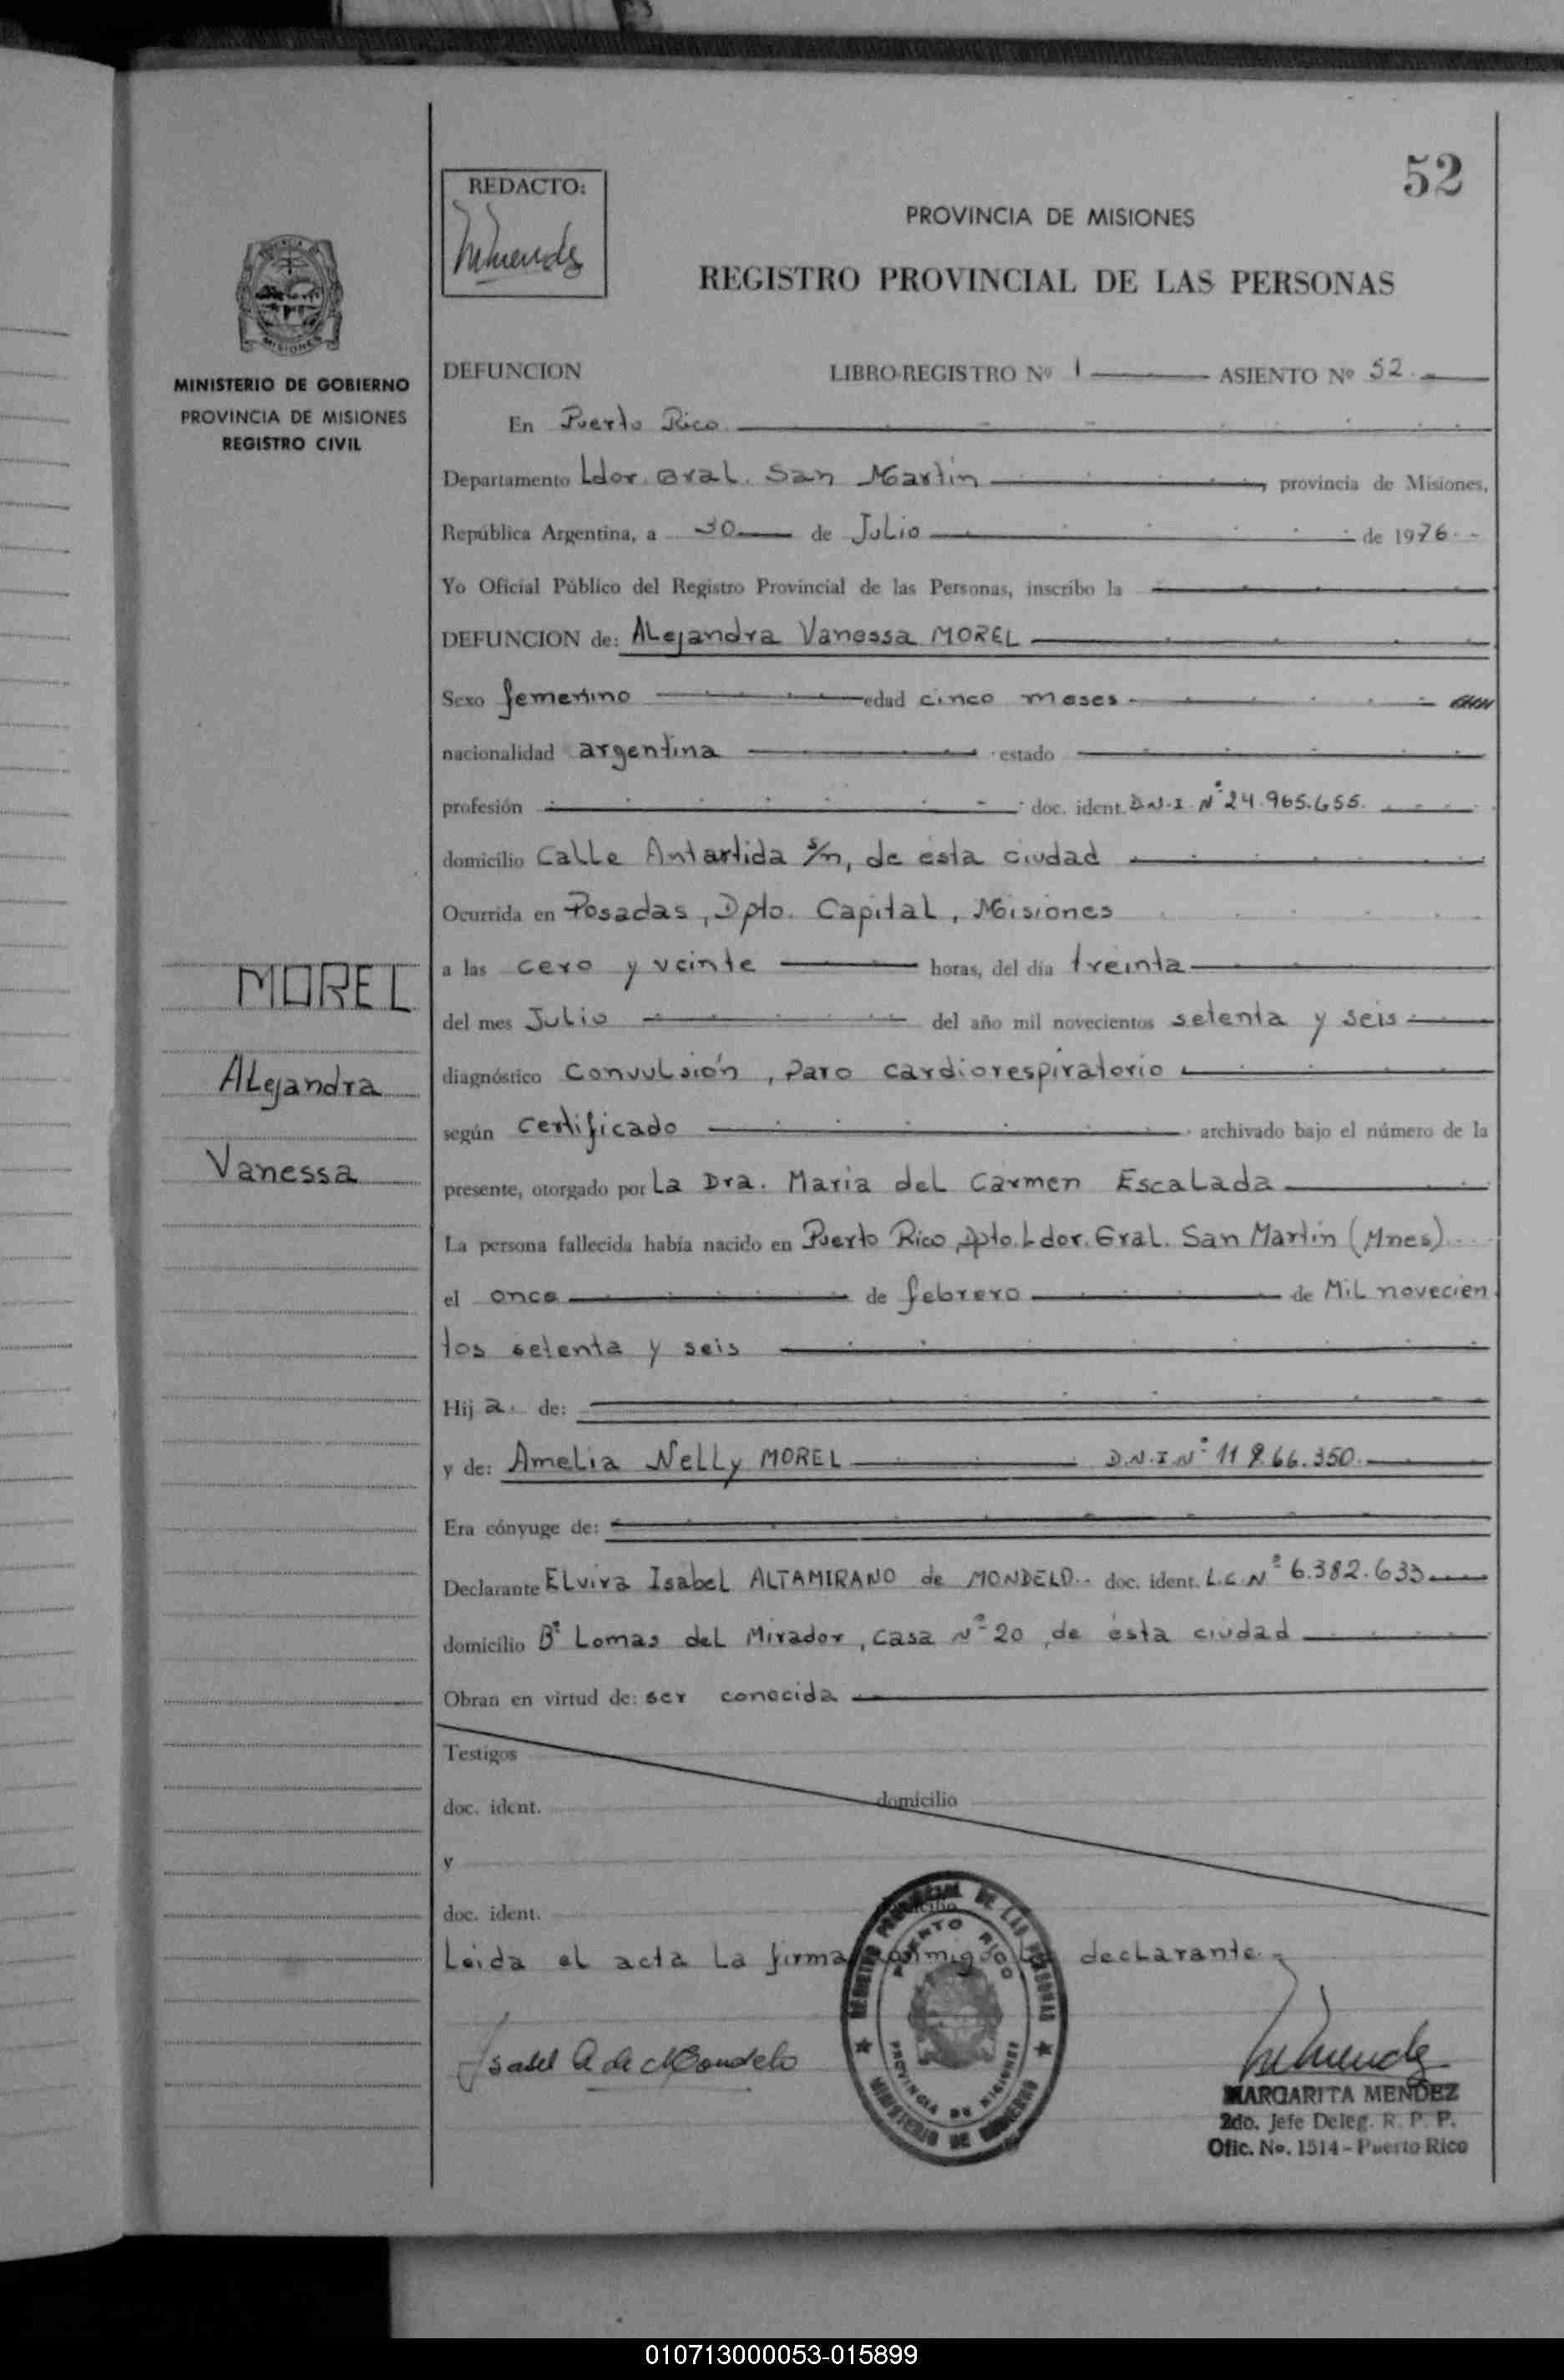 52
REDACTO:
PROVINCIA DE MISIONES
REGISTRO PROVINCIAL DE LAS PERSONAS
MINISTERIO DE GOBIERNO
PROVINCIA DE MISIONES
REGISTRO CIVIL
DEFUNCION LIBRO-REGISTRO Nº 1 ASIENTO Nº 52
En Puerto Rico
Departamento Ldor. Gral. San Martín, provincia de Misiones,
República Argentina, a 30 de Julio de 1976
Yo Oficial Público del Registro Provincial de las Personas, inscribo la
DEFUNCION de: Alejandra Vanessa MOREL
Sexo femenino edad cinco meses
nacionalidad argentina estado
profesión doc. ident. D.N.I. Nº 24.965.655.
domicilio Calle Antartida s/n, de ésta ciudad
Ocurrida en Posadas, Dpto. Capital, Misiones
a las cero y veinte horas, del día treinta
del mes Julio del año mil novecientos setenta y seis
diagnóstico Convulsión, Paro cardiorespiratorio
según certificado archivado bajo el número de la
presente, otorgado por La Dra. Maria del Carmen Escalada
La persona fallecida había nacido en Puerto Rico, Dpto. Ldor. Gral. San Martín (Mnes)
el once de febrero de Mil novecien
tos setenta y seis
Hija de:
y de: Amelia Nelly MOREL D.N.I. Nº 11.866.350.
Era cónyuge de:
Declarante Elvira Isabel ALTAMIRANO de MONDELO doc. ident. L.C. Nº 6.382.633
domicilio Bº Lomas del Mirador, casa Nº 20, de ésta ciudad
Obran en virtud de: ser conocida
Testigos
doc. ident. domicilio
y
doc. ident.
Leida el acta la firma conmigo la declarante.
Isabel A de Mondelo
MOREL
Alejandra
Vanessa
REGISTRO PROVINCIAL DE LAS PERSONAS
PUERTO RICO
PROVINCIA DE MISIONES
MINISTERIO DE GOBIERNO
MARGARITA MENDEZ
2do. Jefe Deleg. R. P. P.
Ofic. No. 1514 - Puerto Rico
010713000053-015899